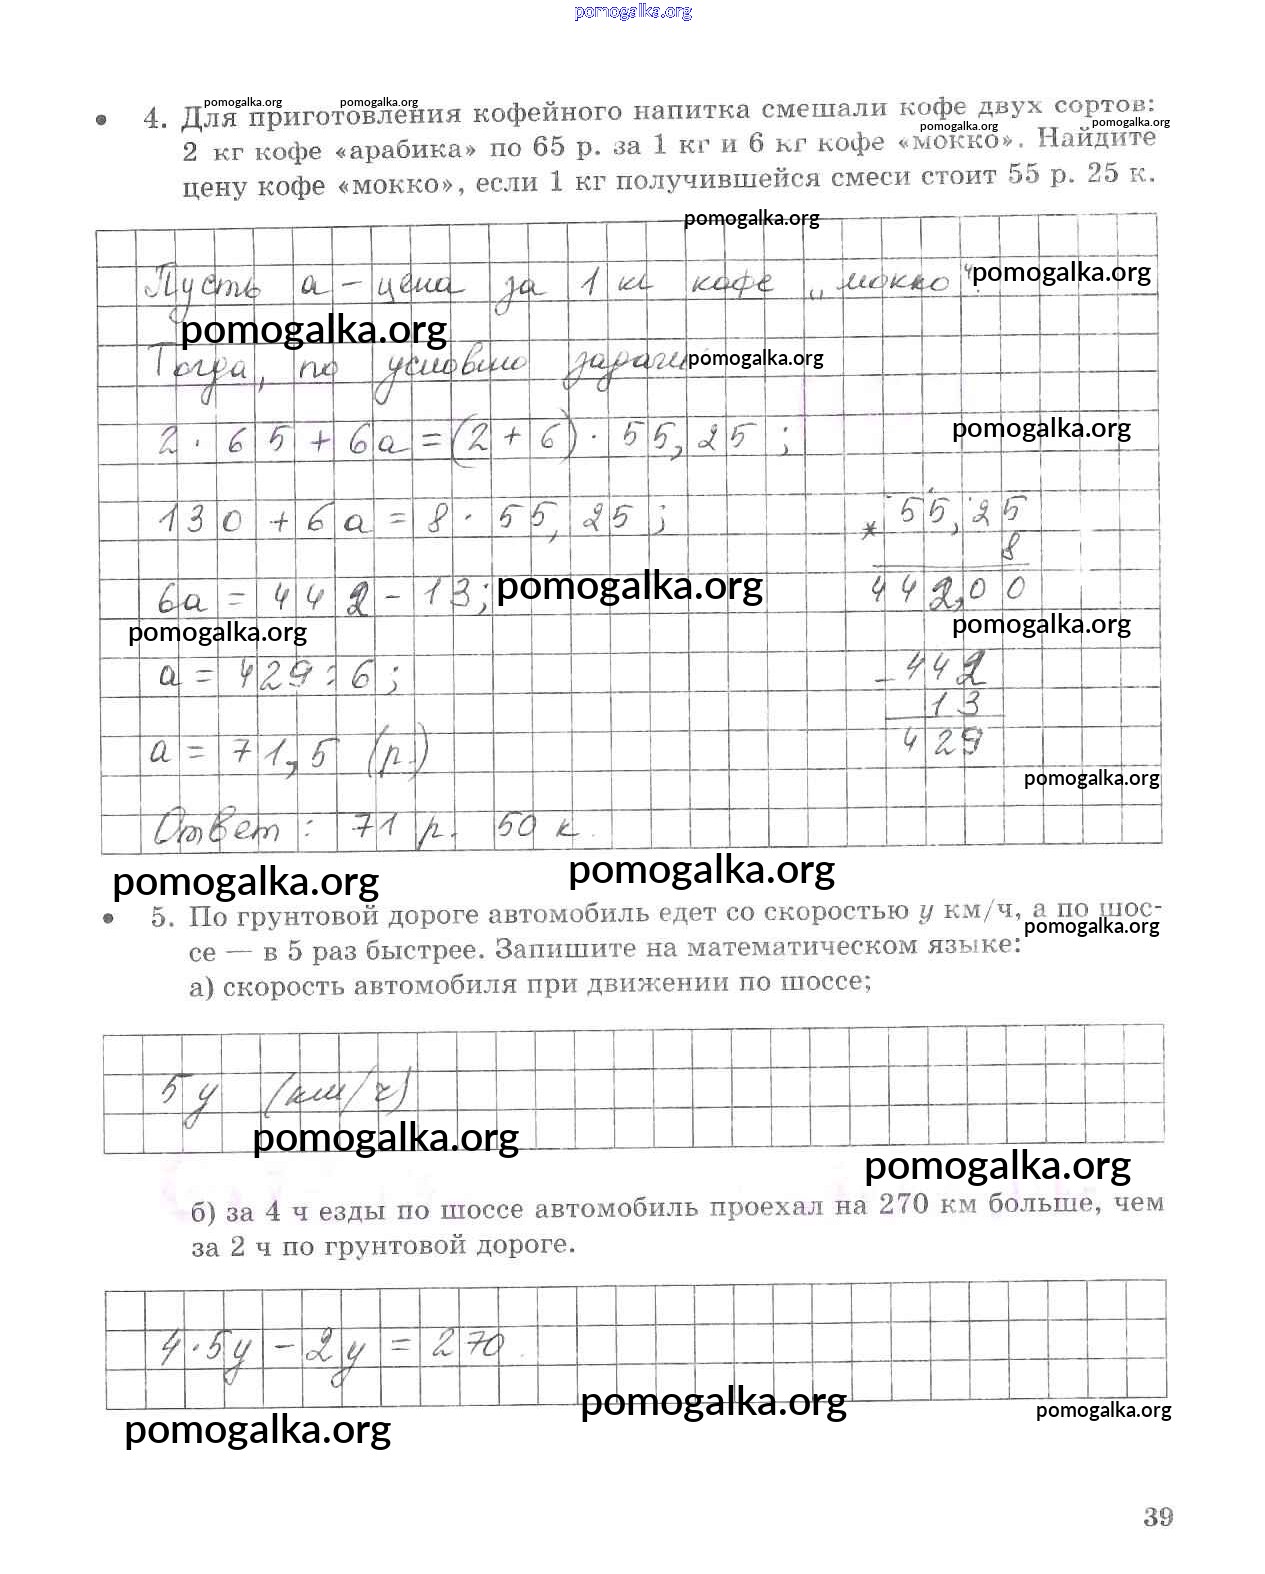 pomogalka.org
pomogalka.org pomogalka.org
• 4. Для приготовления кофейного напитка смешали кофе двух сортов:
pomogalka.org pomogalka.org
2 кг кофе «арабика» по 65 р. за 1 кг и 6 кг кофе «мокко». Найдите
цену кофе «мокко», если 1 кг получившейся смеси стоит 55 р. 25 к.
pomogalka.org
Пусть а – цена за 1 кг кофе „мокко“.
pomogalka.org
pomogalka.org
Тогда, по условию задачи
pomogalka.org
2 · 65 + 6а = (2 + 6) · 55,25 ;
pomogalka.org
130 + 6а = 8 · 55,25 ;
× 55,25
8
442,00
6а = 442 – 13;
pomogalka.org
pomogalka.org
pomogalka.org
а = 429 : 6 ;
– 442
13
429
а = 71,5 (р.)
pomogalka.org
Ответ : 71 р. 50 к.
pomogalka.org
pomogalka.org
• 5. По грунтовой дороге автомобиль едет со скоростью y км/ч, а по шос-
pomogalka.org
се — в 5 раз быстрее. Запишите на математическом языке:
а) скорость автомобиля при движении по шоссе;
5y (км/ч)
pomogalka.org
pomogalka.org
б) за 4 ч езды по шоссе автомобиль проехал на 270 км больше, чем
за 2 ч по грунтовой дороге.
4·5y – 2y = 270
pomogalka.org
pomogalka.org
pomogalka.org
39